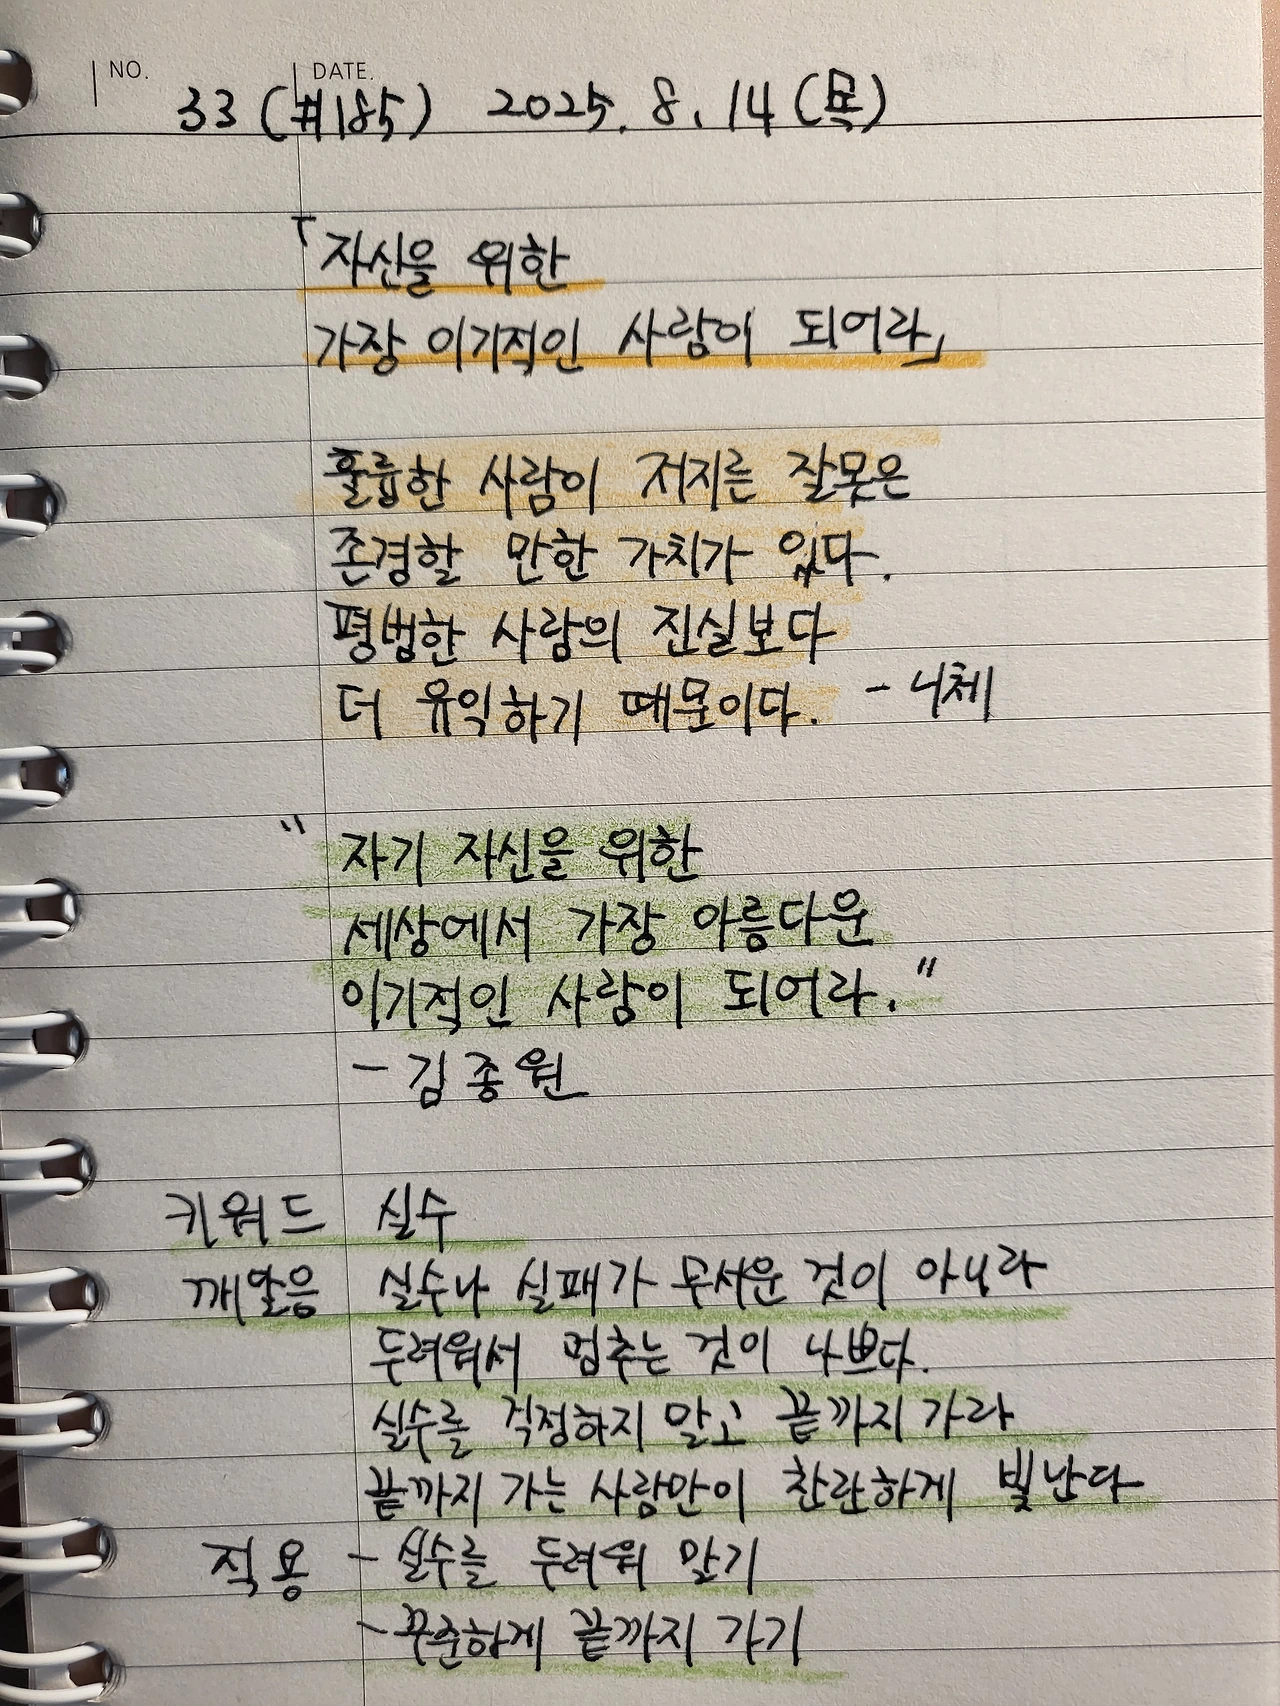 NO. DATE.
33 (#185) 2025. 8. 14 (목)
「자신을 위한
가장 이기적인 사람이 되어라」
훌륭한 사람이 저지른 잘못은
존경할 만한 가치가 있다.
평범한 사람의 진실보다
더 유익하기 때문이다. - 니체
"자기 자신을 위한
세상에서 가장 아름다운
이기적인 사람이 되어라."
- 김종원
키워드 실수
깨달음 실수나 실패가 무서운 것이 아니라
두려워서 멈추는 것이 나쁘다.
실수를 걱정하지 말고 끝까지 가라
끝까지 가는 사람만이 찬란하게 빛난다
적용 - 실수를 두려워 말기
- 꾸준하게 끝까지 가기